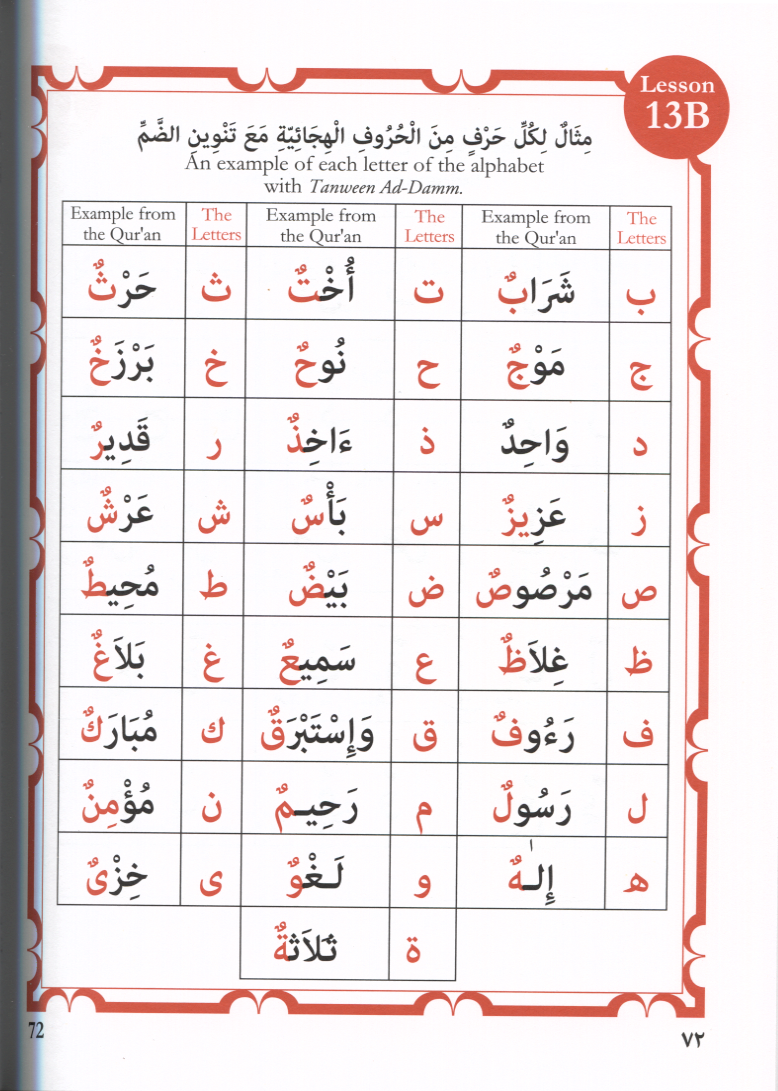 Lesson
13B
مِثَالٌ لِكُلِّ حَرْفٍ مِنَ الْحُرُوفِ الْهِجَائِيّةِ مَعَ تَنْوِينِ الضَّمِّ
An example of each letter of the alphabet
with Tanween Ad-Damm.
Example from the Qur'an The Letters Example from the Qur'an The Letters Example from the Qur'an The Letters
ب شَرَابٌ ت أُخْتٌ ث حَرْثٌ
ج مَوْجٌ ح نُوحٌ خ بَرْزَخٌ
د وَاحِدٌ ذ ءَاخِذٌ ر قَدِيرٌ
ز عَزِيزٌ س بَأْسٌ ش عَرْشٌ
ص مَرْصُوصٌ ض بَيْضٌ ط مُحِيطٌ
ظ غِلاَظٌ ع سَمِيعٌ غ بَلاَغٌ
ف رَءُوفٌ ق وَإِسْتَبْرَقٌ ك مُبَارَكٌ
ل رَسُولٌ م رَحِيـمٌ ن مُؤْمِنٌ
ه إِلـٰهٌ و لَـغْوٌ ى خِزْىٌ
ة ثَلاَثةٌ
72
٧٢